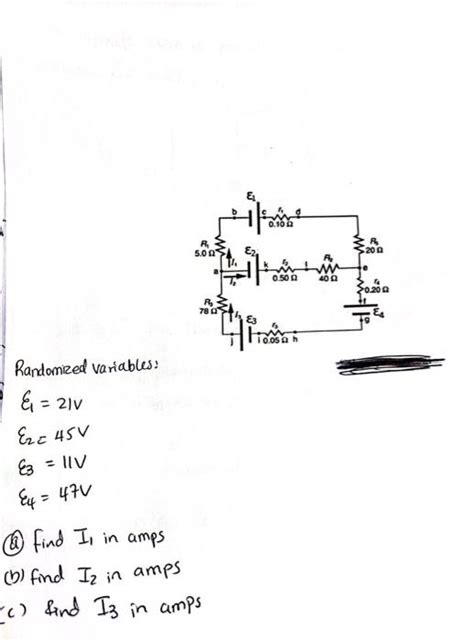 ε₁
b c r₁ d
0.10 Ω
R₁
5.0 Ω
I₁
ε₂
R₅
20 Ω
a
I₂
k r₂ l
0.50 Ω
40 Ω
e
r₄
0.20 Ω
R₃
78 Ω
I₃
f
ε₄
g
ε₃
j i r₃
0.05 Ω h
Randomized variables:
ε₁ = 21V
ε₂ = 45V
ε₃ = 11V
ε₄ = 47V
(a) find I₁ in amps
(b) find I₂ in amps
(c) find I₃ in amps